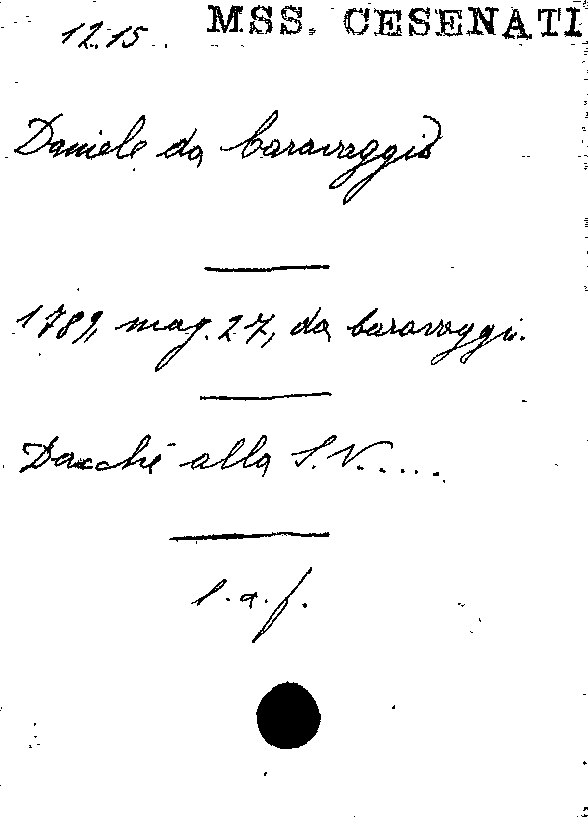 12.15. MSS. CESENATI
Daniele da Caravaggio
1789, mag. 27, da Caravaggio.
Dacché alla S.V.....
l.a.f.